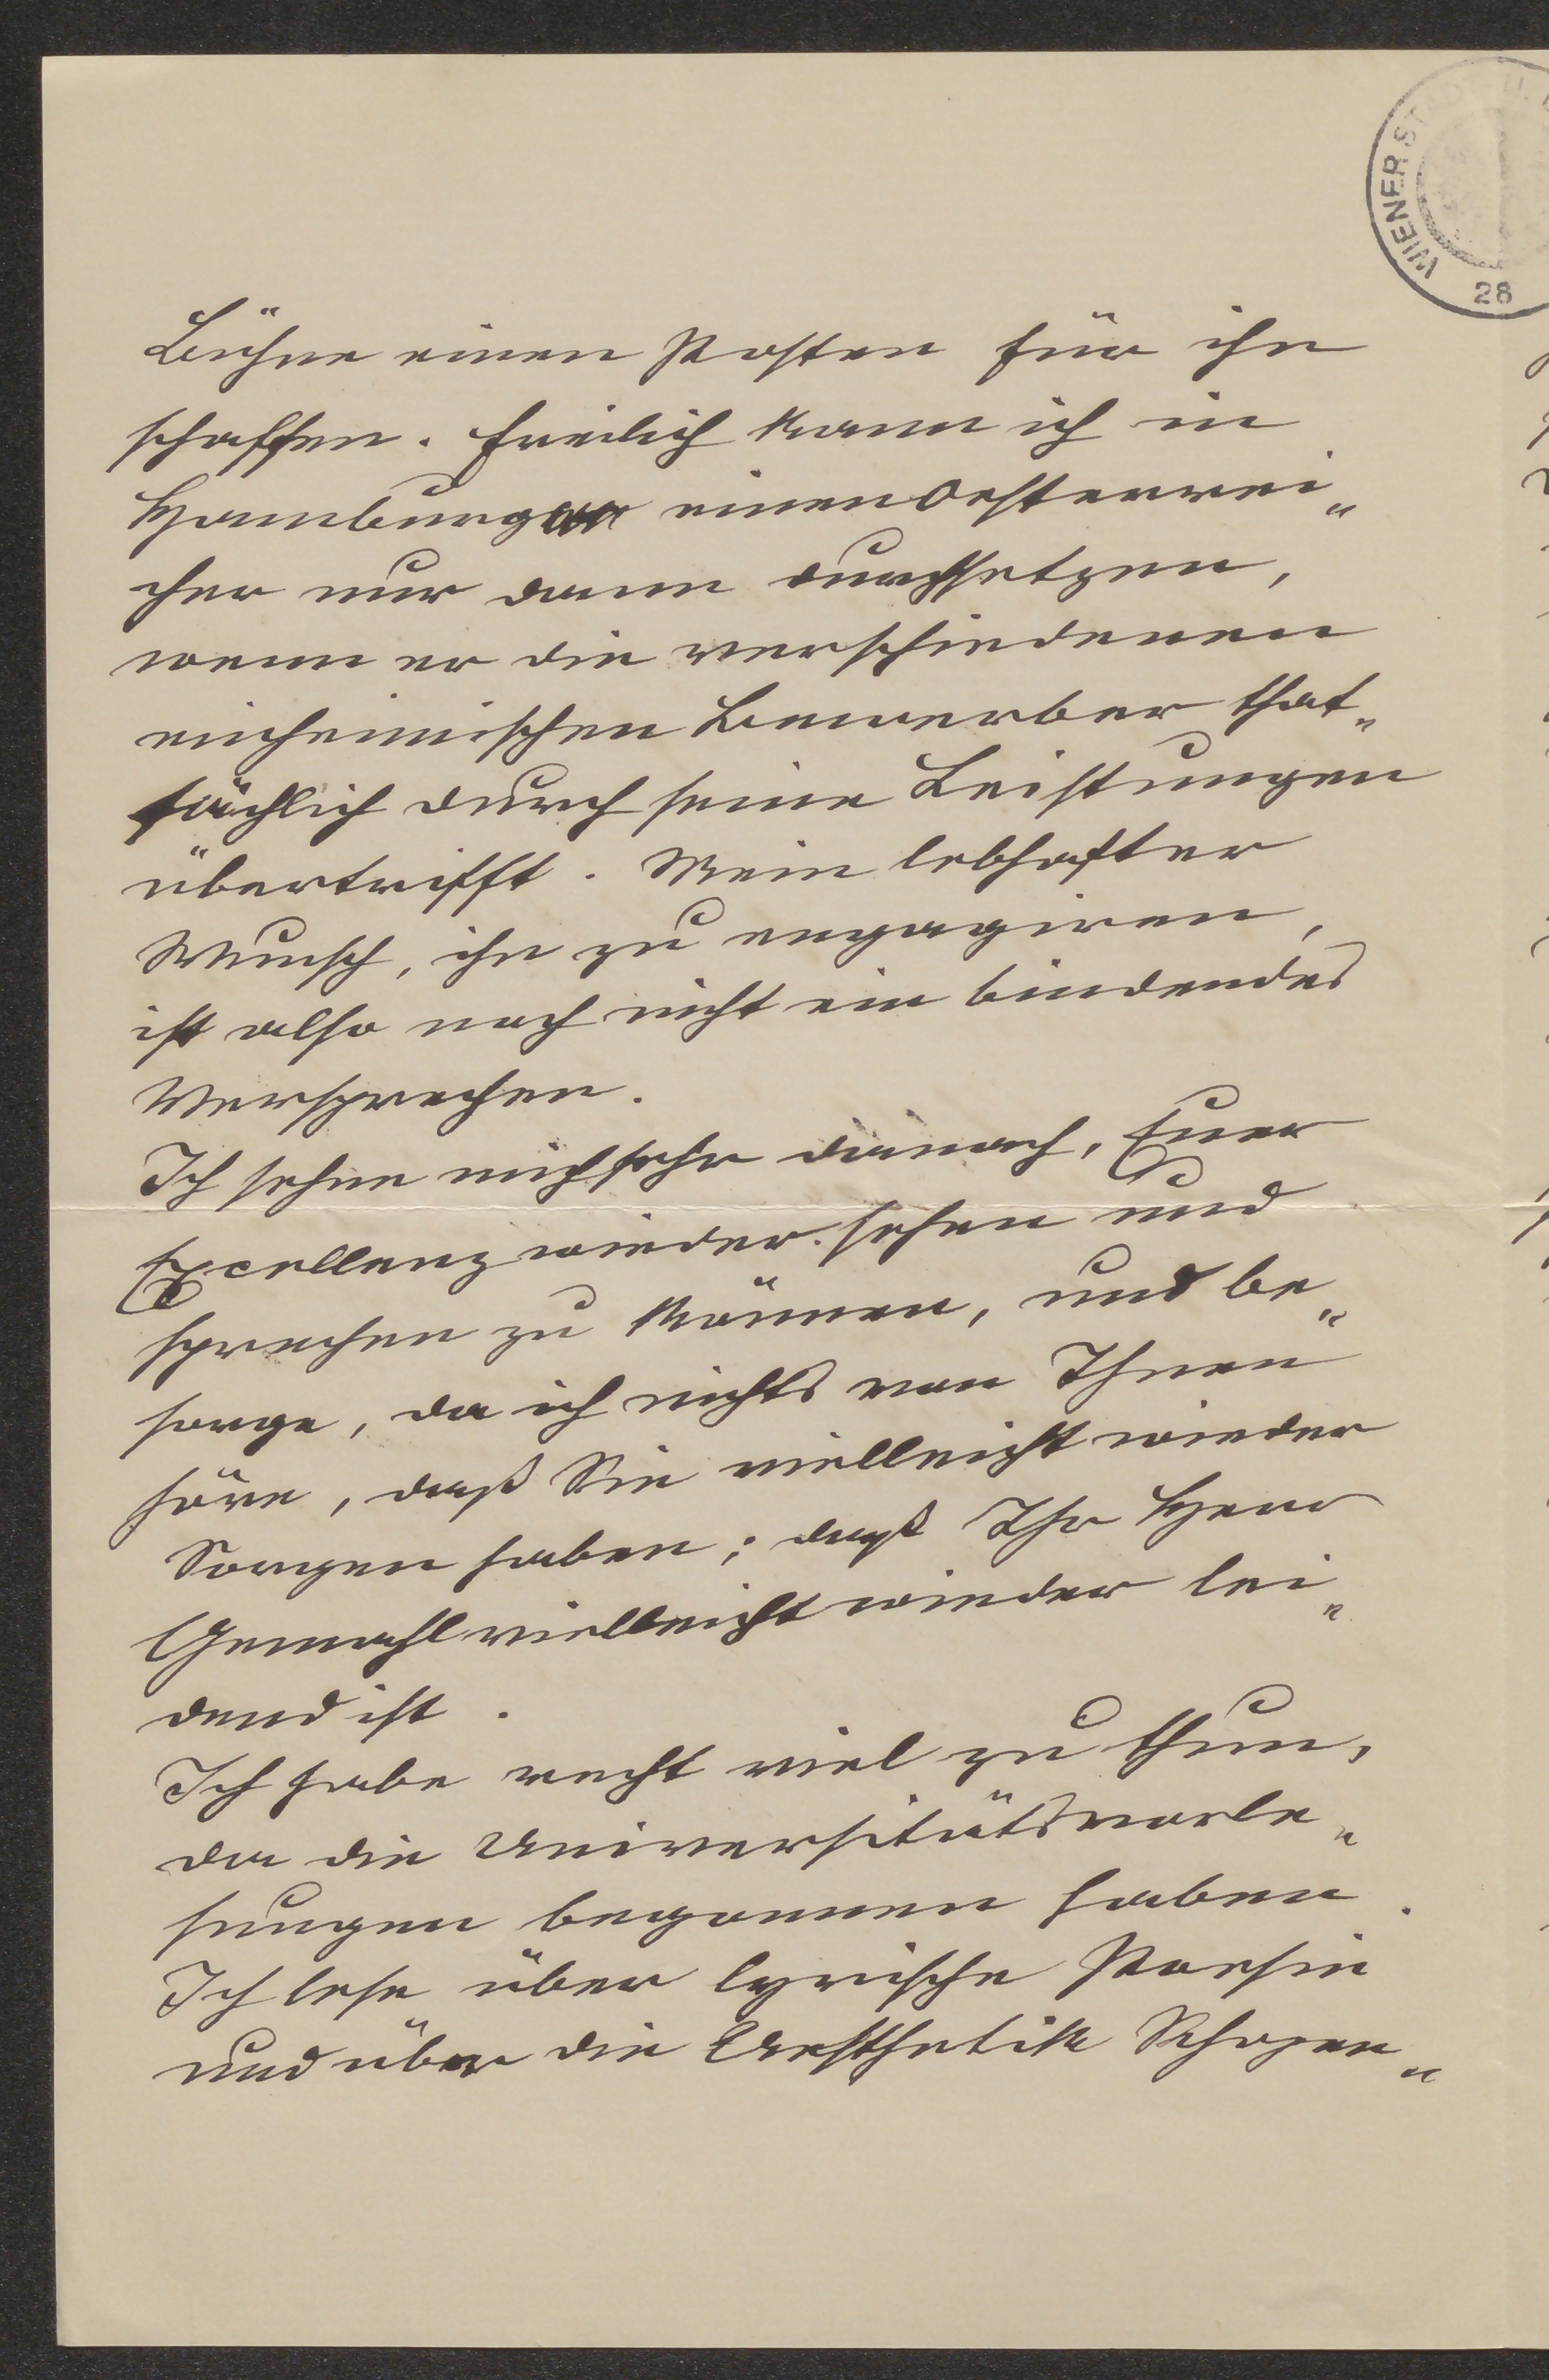 WIENER STADT
28
Bühne einen Posten für ihn
schaffen. Freilich kann ich in
Hamburg einen Oesterrei„
cher nur dann durchsetzen,
wenn er die verschiedenen
einheimischen Bewerber that„
sächlich durch seine Leistungen
übertrifft. Mein lebhafter
Wunsch, ihn zu engagiren,
ist also noch nicht ein bindendes
Versprechen.
Ich sehne mich sehr danach, Euer
Excellenz wieder sehen und
sprechen zu können, und be„
sorge, da ich nichts von Ihnen
höre, daß Sie vielleicht wieder
Sorgen haben; daß Ihr Herr
Gemahl vielleicht wieder lei„
dend ist.
Ich habe recht viel zu thun,
da die Universitätsvorle„
sungen begonnen haben.
Ich lese über lyrische Poesie
und über die Aesthetik Schopen„